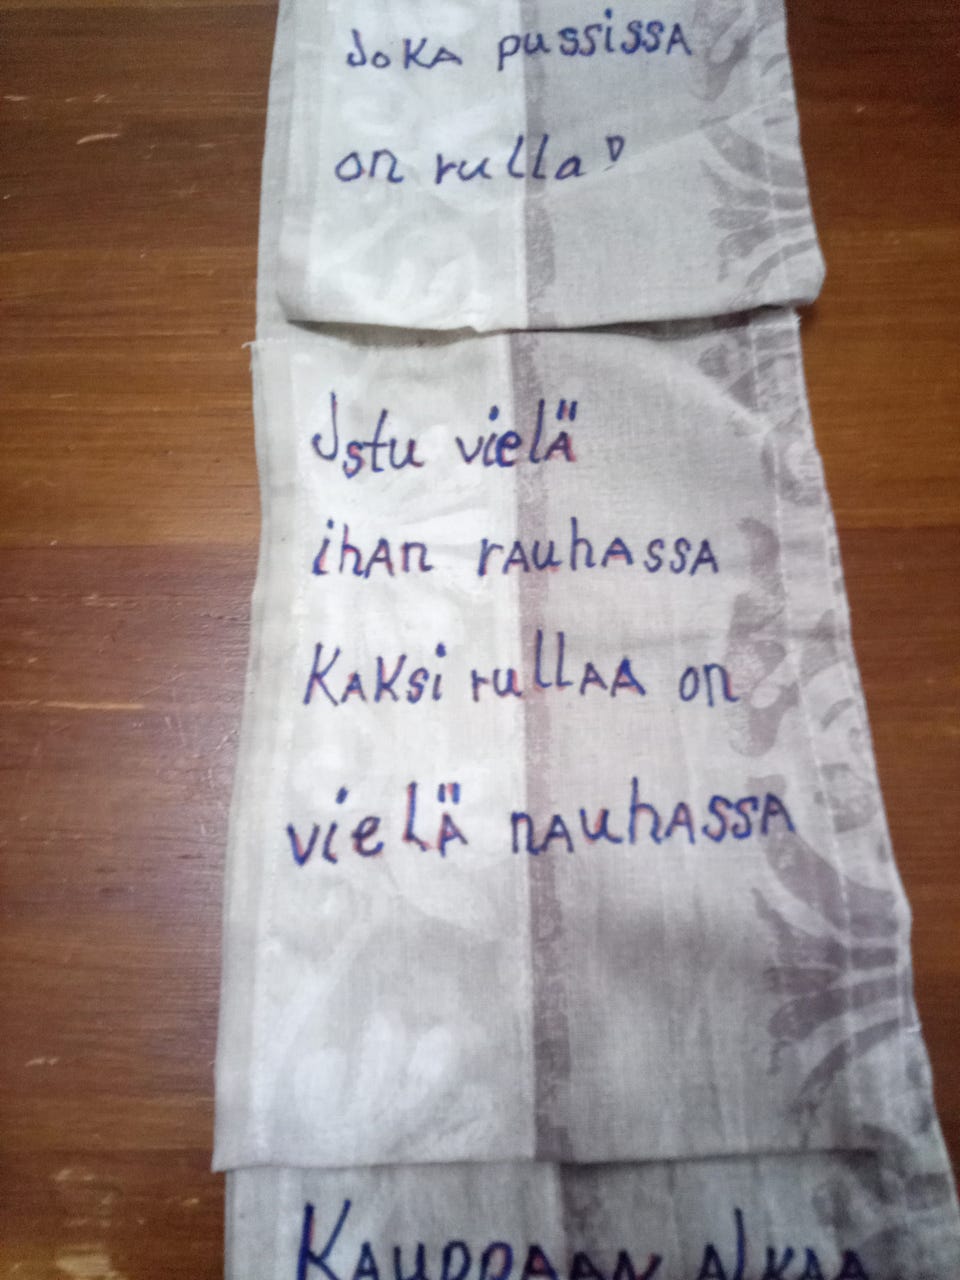 JOKA pussissA
on rulla
Istu vielä
ihAn rAuhAssA
KAKsi rullAA on
vielä nAuhAssA
KAUPPAAN AlKAA